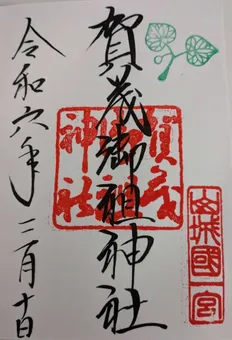 賀茂御祖神社
令和六年二月十日
山城國一宮
賀茂御祖神社